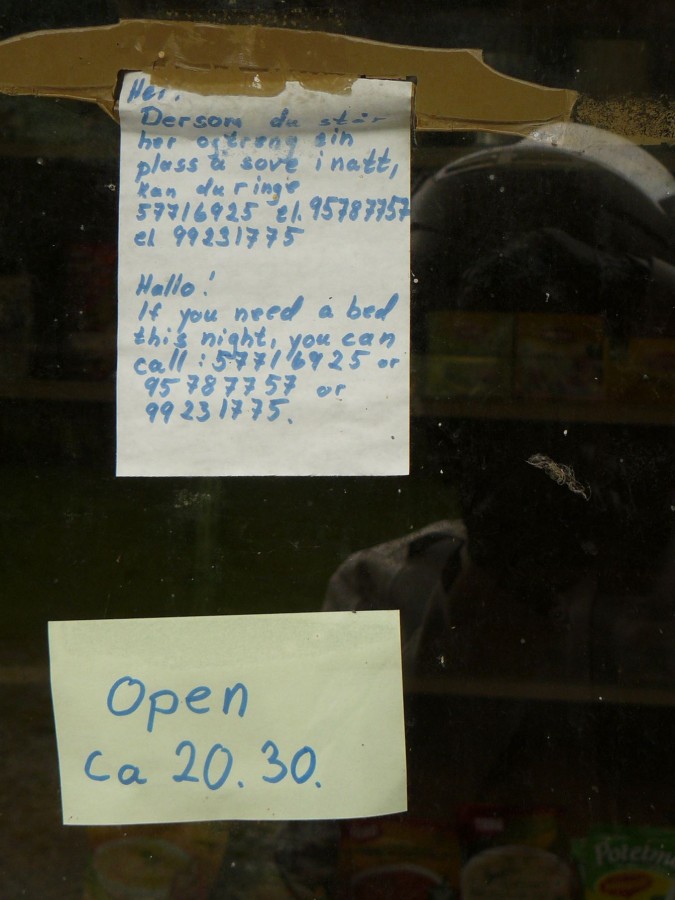 Hei!
Dersom du står
her og treng ein
plass å sove i natt,
kan du ringe
57716925 el. 95787757
el 99231775
Hallo!
If you need a bed
this night, you can
call : 57716925 or
95787757 or
99231775.
Open
ca 20.30.